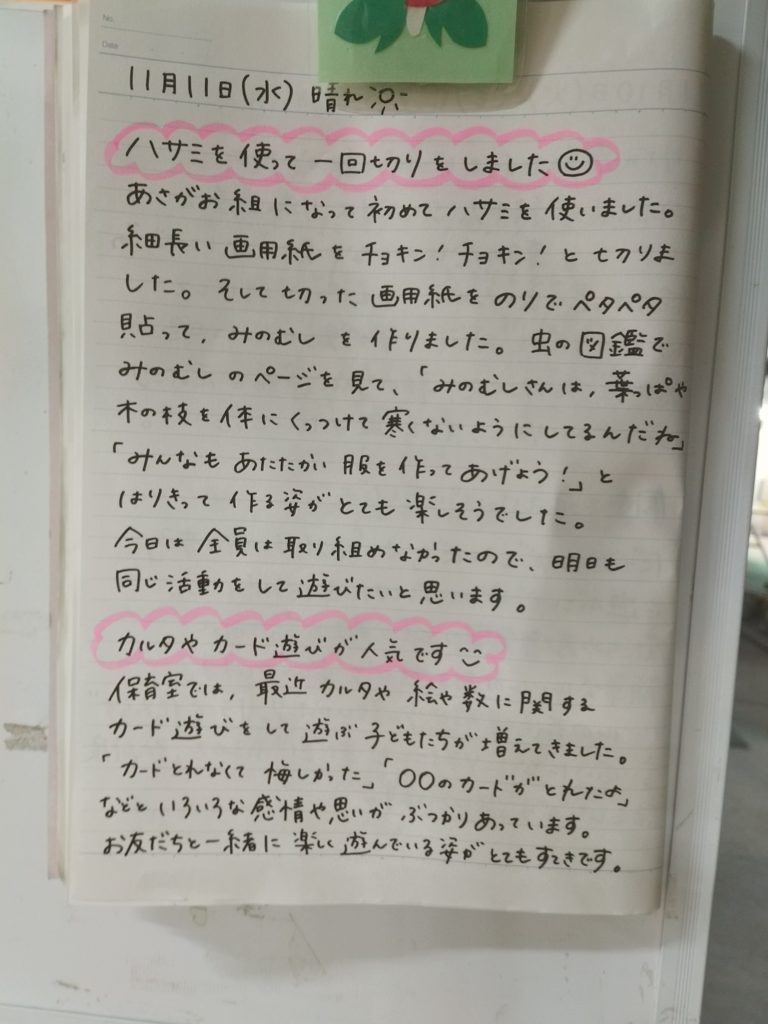 No.
Date
11月11日(水) 晴れ
ハサミを使って一回切りをしました
あさがお組になって初めてハサミを使いました。
細長い画用紙をチョキン!チョキン!と切りま
した。そして切った画用紙をのりでペタペタ
貼って、みのむしを作りました。虫の図鑑で
みのむしのページを見て、「みのむしさんは、葉っぱや
木の枝を体にくっつけて寒くないようにしてるんだね」
「みんなもあたたかい服を作ってあげよう!」と
はりきって作る姿がとても楽しそうでした。
今日は全員は取り組めなかったので、明日も
同じ活動をして遊びたいと思います。
カルタやカード遊びが人気です
保育室では、最近カルタや絵や数に関する
カード遊びをして遊ぶ子どもたちが増えてきました。
「カードとれなくて悔しかった」「〇〇のカードがとれたよ」
などといろいろな感情や思いがぶつかりあっています。
お友だちと一緒に楽しく遊んでいる姿がとてもすてきです。